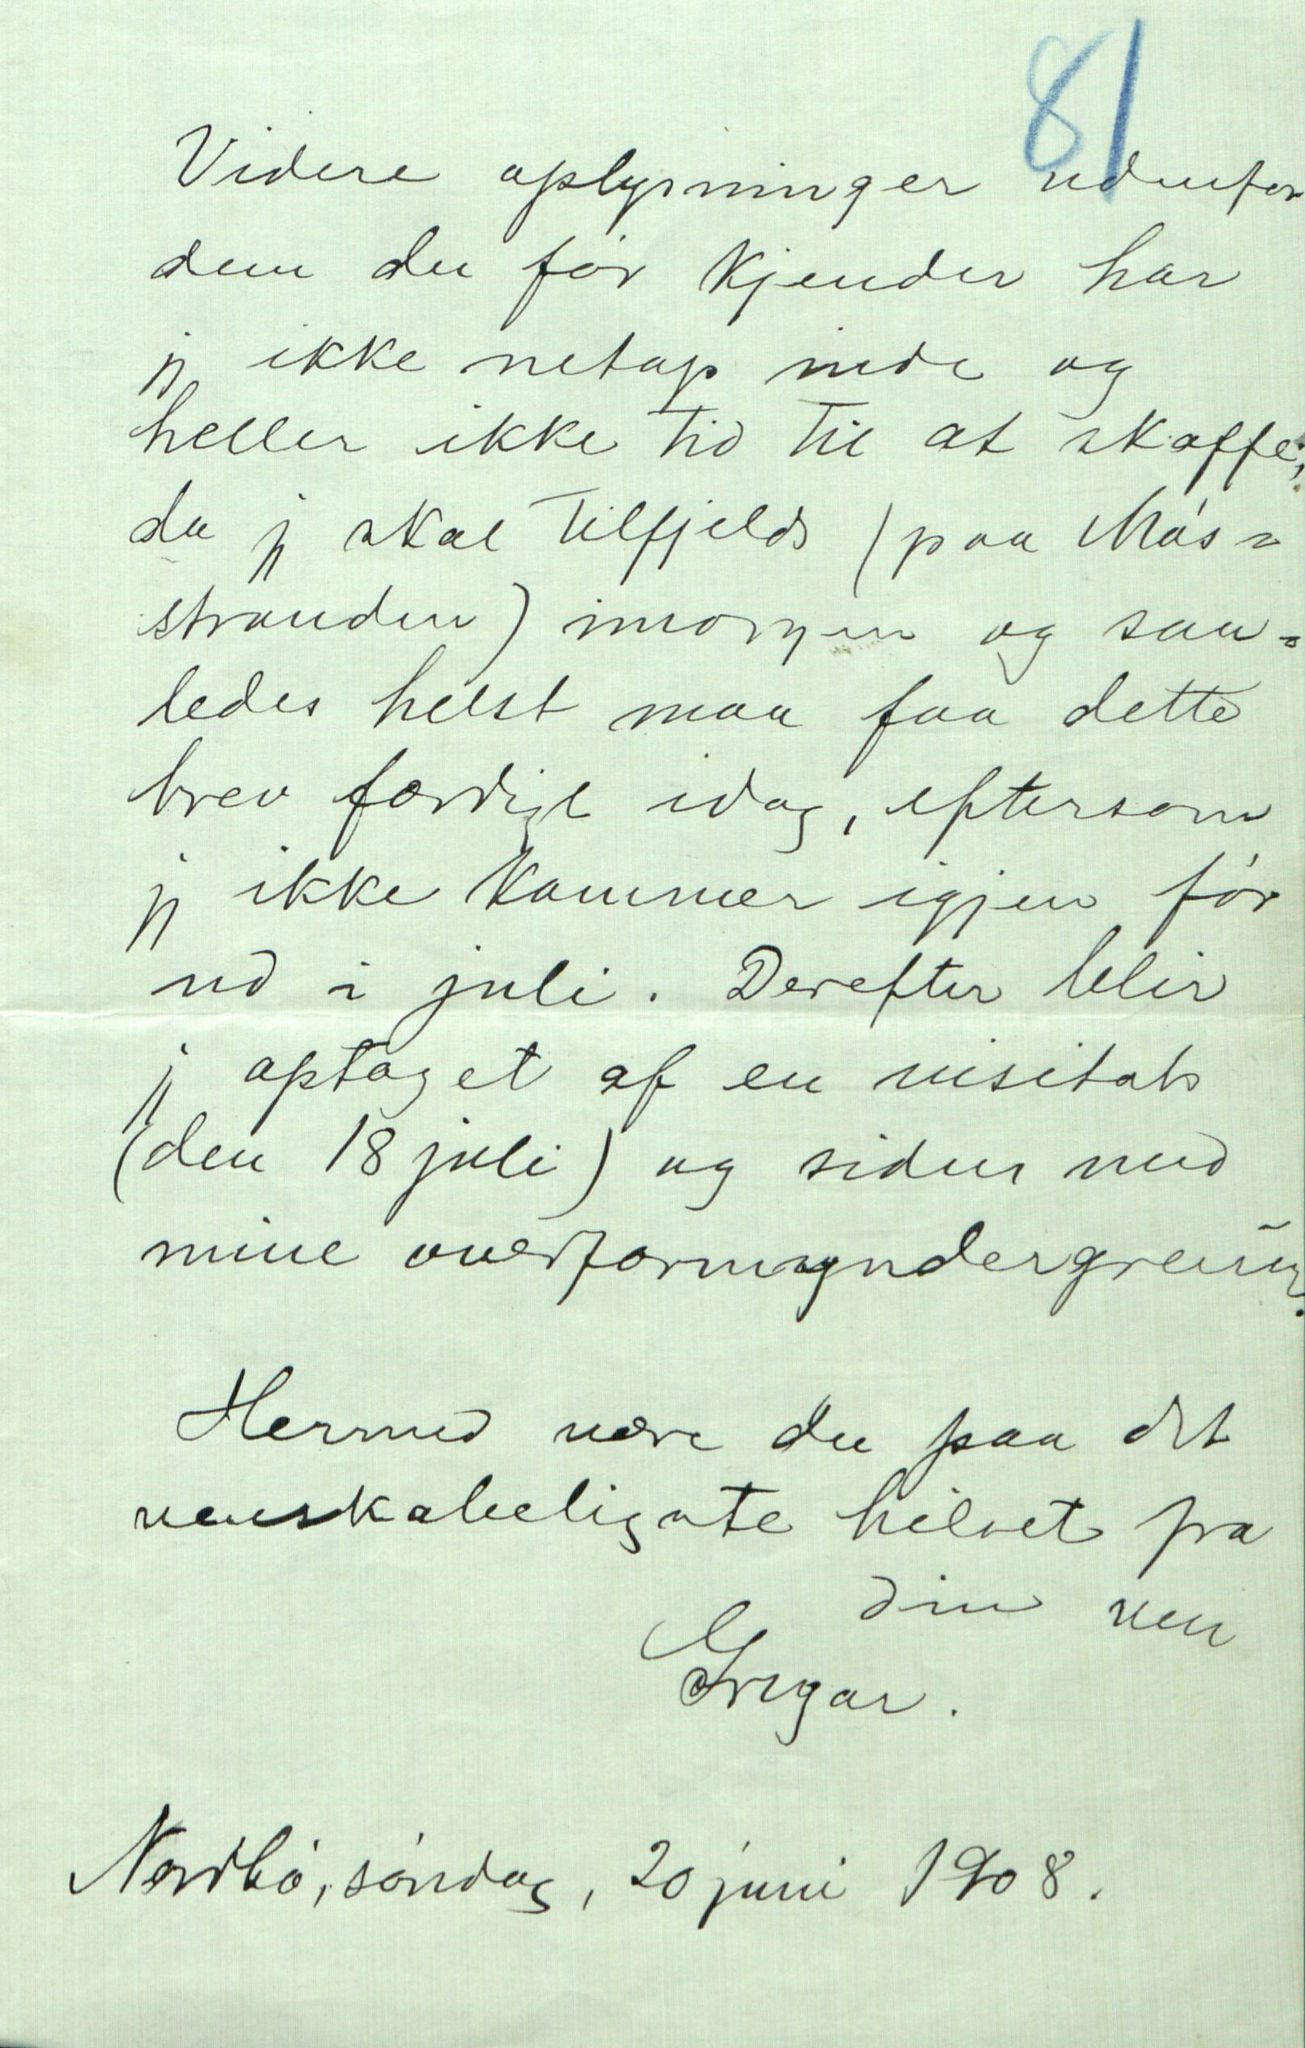 81
Videre oplysninger udenfor
dem du før kjender har
jeg ikke netop inde og
heller ikke tid til at skaffe,
da jeg skal tilfjelds (paa Møs=
stranden) imorgen og saa=
ledes helst maa faa dette
brev færdigt idag, eftersom
jeg ikke kommer igjen før
ud i juli. Derefter blir
jeg optaget af en visitats
(den 18 juli) og siden med
mine overformyndergreiur.
Hermed være du paa det
venskabeligste hilset fra
din ven
Gregar.
Nordbø, søndag, 20 juni 1908.